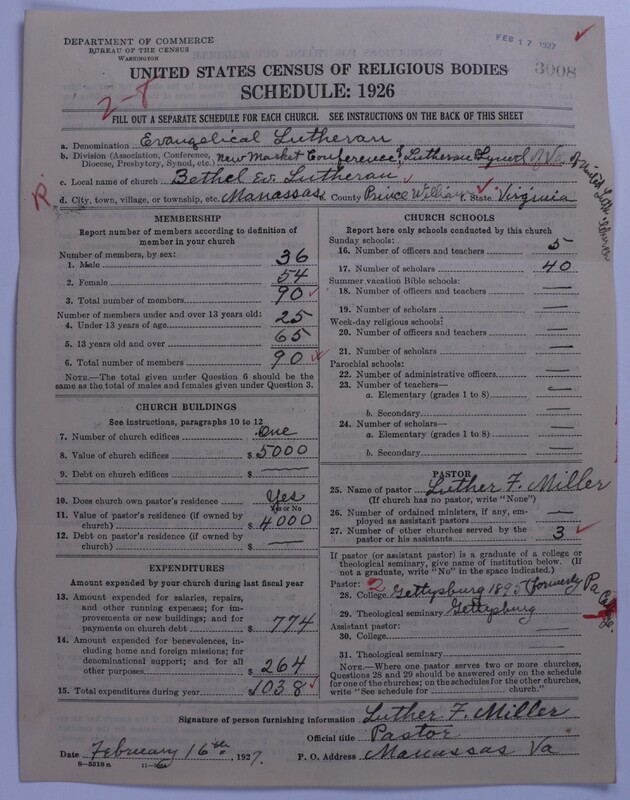 DEPARTMENT OF COMMERCE
BUREAU OF THE CENSUS
WASHINGTON
FEB 17 1927
3008
UNITED STATES CENSUS OF RELIGIOUS BODIES
SCHEDULE: 1926
2-8
FILL OUT A SEPARATE SCHEDULE FOR EACH CHURCH. SEE INSTRUCTIONS ON THE BACK OF THIS SHEET
a. Denomination Evangelical Lutheran
b. Division (Association, Conference, Diocese, Presbytery, Synod, etc.) New Market Conference, Lutheran Synod of Va. of United Luth Church
c. Local name of church Bethel Ev. Lutheran
d. City, town, village, or township, etc. Manassas County Prince William f. State Virginia
R
MEMBERSHIP
Report number of members according to definition of
member in your church
Number of members, by sex:
1. Male 36
2. Female 54
3. Total number of members 90
Number of members under and over 13 years old:
4. Under 13 years of age 25
5. 13 years old and over 65
6. Total number of members 90
NOTE.—The total given under Question 6 should be the
same as the total of males and females given under Question 3.
CHURCH BUILDINGS
See instructions, paragraphs 10 to 12
7. Number of church edifices One
8. Value of church edifices $ 5000
9. Debt on church edifices $ —
10. Does church own pastor's residence Yes
Yes or No
11. Value of pastor's residence (if owned by
church) $ 4000
12. Debt on pastor's residence (if owned by
church) $ —
EXPENDITURES
Amount expended by your church during last fiscal year
13. Amount expended for salaries, repairs,
and other running expenses; for im-
provements or new buildings; and for
payments on church debt $ 774
14. Amount expended for benevolences, in-
cluding home and foreign missions; for
denominational support; and for all
other purposes $ 264
15. Total expenditures during year $ 1038
CHURCH SCHOOLS
Report here only schools conducted by this church
Sunday schools:
16. Number of officers and teachers 5
17. Number of scholars 40
Summer vacation Bible schools:
18. Number of officers and teachers —
19. Number of scholars —
Week-day religious schools:
20. Number of officers and teachers —
21. Number of scholars —
Parochial schools:
22. Number of administrative officers —
23. Number of teachers—
a. Elementary (grades 1 to 8) —
b. Secondary —
24. Number of scholars—
a. Elementary (grades 1 to 8) —
b. Secondary —
PASTOR
25. Name of pastor Luther F. Miller
(If church has no pastor, write "None")
26. Number of ordained ministers, if any, em-
ployed as assistant pastors —
27. Number of other churches served by the
pastor or his assistants 3
If pastor (or assistant pastor) is a graduate of a college or
theological seminary, give name of institution below. (If
not a graduate, write "No" in the space indicated.)
Pastor: 2
28. College Gettysburg 1895 (formerly Pa College
29. Theological seminary Gettysburg
Assistant pastor:
30. College —
31. Theological seminary —
NOTE.—Where one pastor serves two or more churches,
Questions 28 and 29 should be answered only on the schedule
for one of the churches; on the schedules for the other churches,
write "See schedule for church."
Signature of person furnishing information Luther F. Miller
Official title Pastor
Date February 16th, 1927. P. O. Address Manassas Va
8—5518a